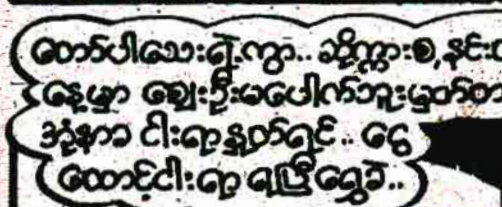 တော်ပါသေးရဲ့ကွာ.. ဆိုက္ကားစ, နင်း
နေ့မှာ ဈေးဦးမပေါက်ဘူးမှတ်တာ
အံ့နာခ ငါးရာနှုတ်ရင်.. ငွေ
ထောင့်ငါးရာ ရပြီရွှေခဲ..